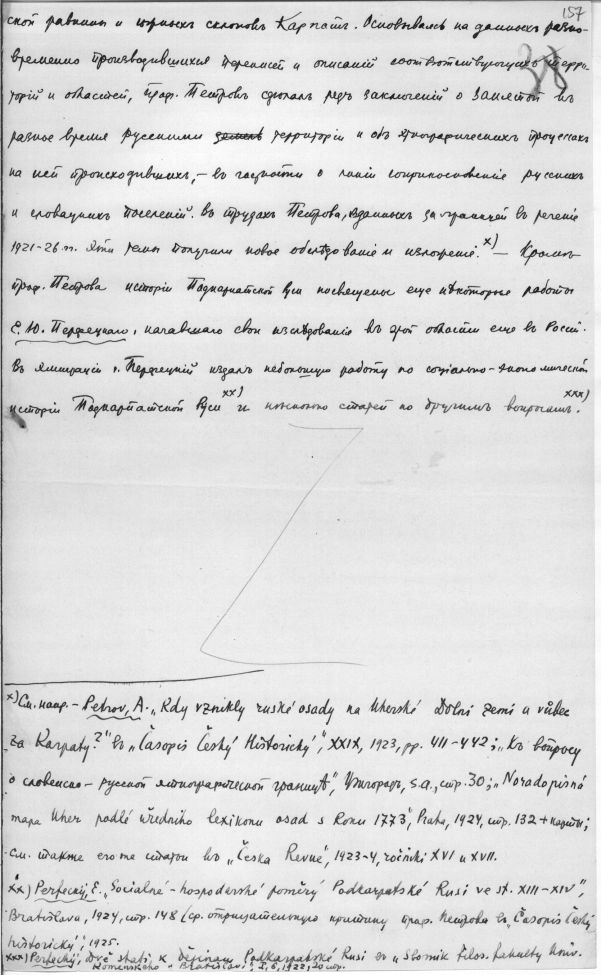 157
ской равнины и южныхъ склоновъ Карпатъ. Основываясь на данныхъ разно-
временно производившихся переписей и описаній соотвѣтствующихъ терри-
торій и областей, проф. Петровъ сдѣлалъ рядъ заключеній о занятой въ
разное время русскими земель территоріи и объ этнографическихъ процессахъ
на ней происходившихъ, – въ частности о линіи соприкосновенія русскихъ
и словацкихъ поселеній. Въ трудахъ Петрова, изданныхъ за границей въ теченіе
1921-26 гг. эти темы получили новое обслѣдованіе и изложеніе. x) – Кромѣ
проф. Петрова исторіи Подкарпатской Руси посвящены еще нѣкоторые работы
Е. Ю. Перфецкаго, начавшаго свои изслѣдованія въ этой области еще въ Россіи.
Въ эмиграціи г. Перфецкій издалъ небольшую работу по соціально-экономической
исторіи Подкарпатской Руси xx) и нѣсколько статей по другимъ вопросамъ. xxx)
x) См. напр. – Petrov, A. „Kdy vznikly ruské osady na Uherské Dolní zemi a vůbec
za Karpaty?" въ „Časopis Český Historický", XXIX, 1923, pp. 411-442; „Къ вопросу
о словенско-русской этнографической границѣ", Ужгородъ, s.a., стр. 30; „Národopisná
mapa Uher podlé úředního lexikonu osad z roku 1773", Praha, 1924, стр. 132 + карты;
См. также его же статью въ „Česka Revue", 1923-4, ročníki XVI и XVII.
xx) Perfeckij, E. „Sociálně-hospodářské poměry Podkarpatské Rusi ve st. XIII-XIV",
Bratislava, 1924, стр. 148 (ср. отрицательную критику проф. Петрова въ „Časopis Český
historický", 1925.
xxx) Perfeckij, Dvě stati, k dějinám Podkarpatské Rusi въ „Sborník filos. fakulty Univ.
Komenského v Bratislavě", I, 6, 1922, 20 стр.